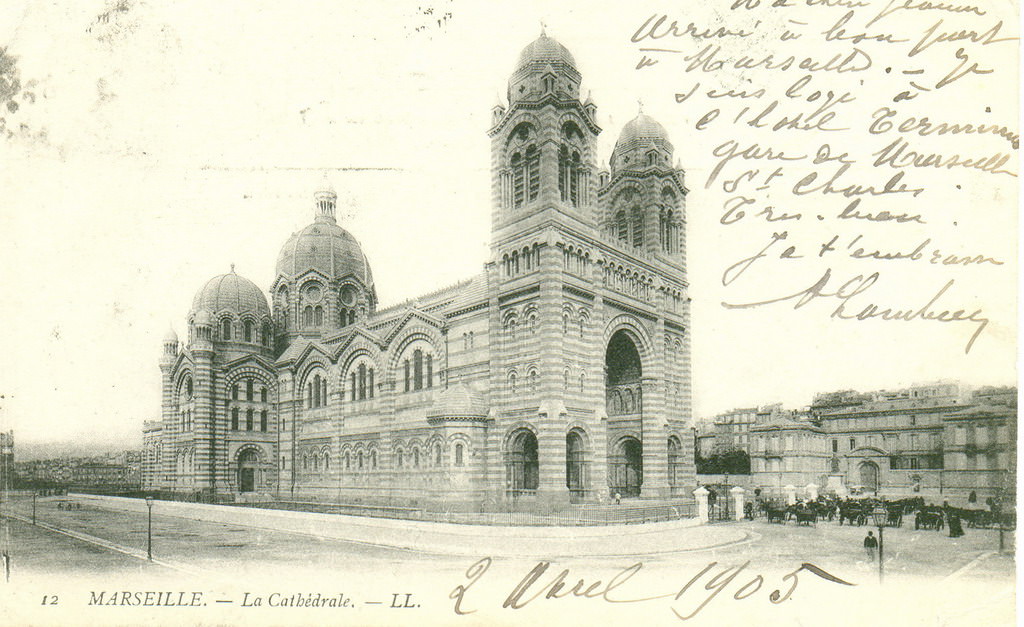 Arrivé à bon port
à Marseille. — Je
suis logé à
l'hotel Terminus
gare de Marseille
St Charles.
Très-bien.
Je t'embrasse
2 Avril 1905
12 MARSEILLE. — La Cathédrale. — LL.